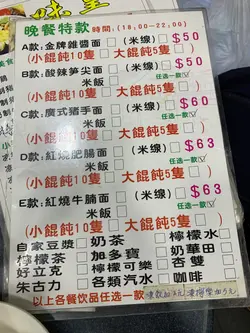 晚餐特款 時間:(18:00-22:00)
A款:金牌雜醬面□(米線)□$50
米飯□
(小餛飩10隻 大餛飩5隻)任选一款☑
B款:酸辣笋尖面□(米線)□$50
米飯□
(小餛飩10隻□大餛飩5隻□)
C款:廣式猪手面□(米線)□$60
米飯□ 任选一款☑
(小餛飩10隻□大餛飩5隻□)
D款:紅燒肥腸面□(米線)□$63
米飯□ 任选一款☑
(小餛飩10隻□大餛飩5隻□)
E款:紅燒牛腩面□(米線)□$63
米飯□ 任选一款☑
(小餛飩10隻□大餛飩5隻□)
自家豆漿□ 奶茶□ 檸檬水□
檸檬茶□ 加多寶□ 奶華田□
好立克□ 檸檬可樂□ 杏雙□
朱古力□ 各類汽水□ 咖啡□
以上各餐饮品任选一款